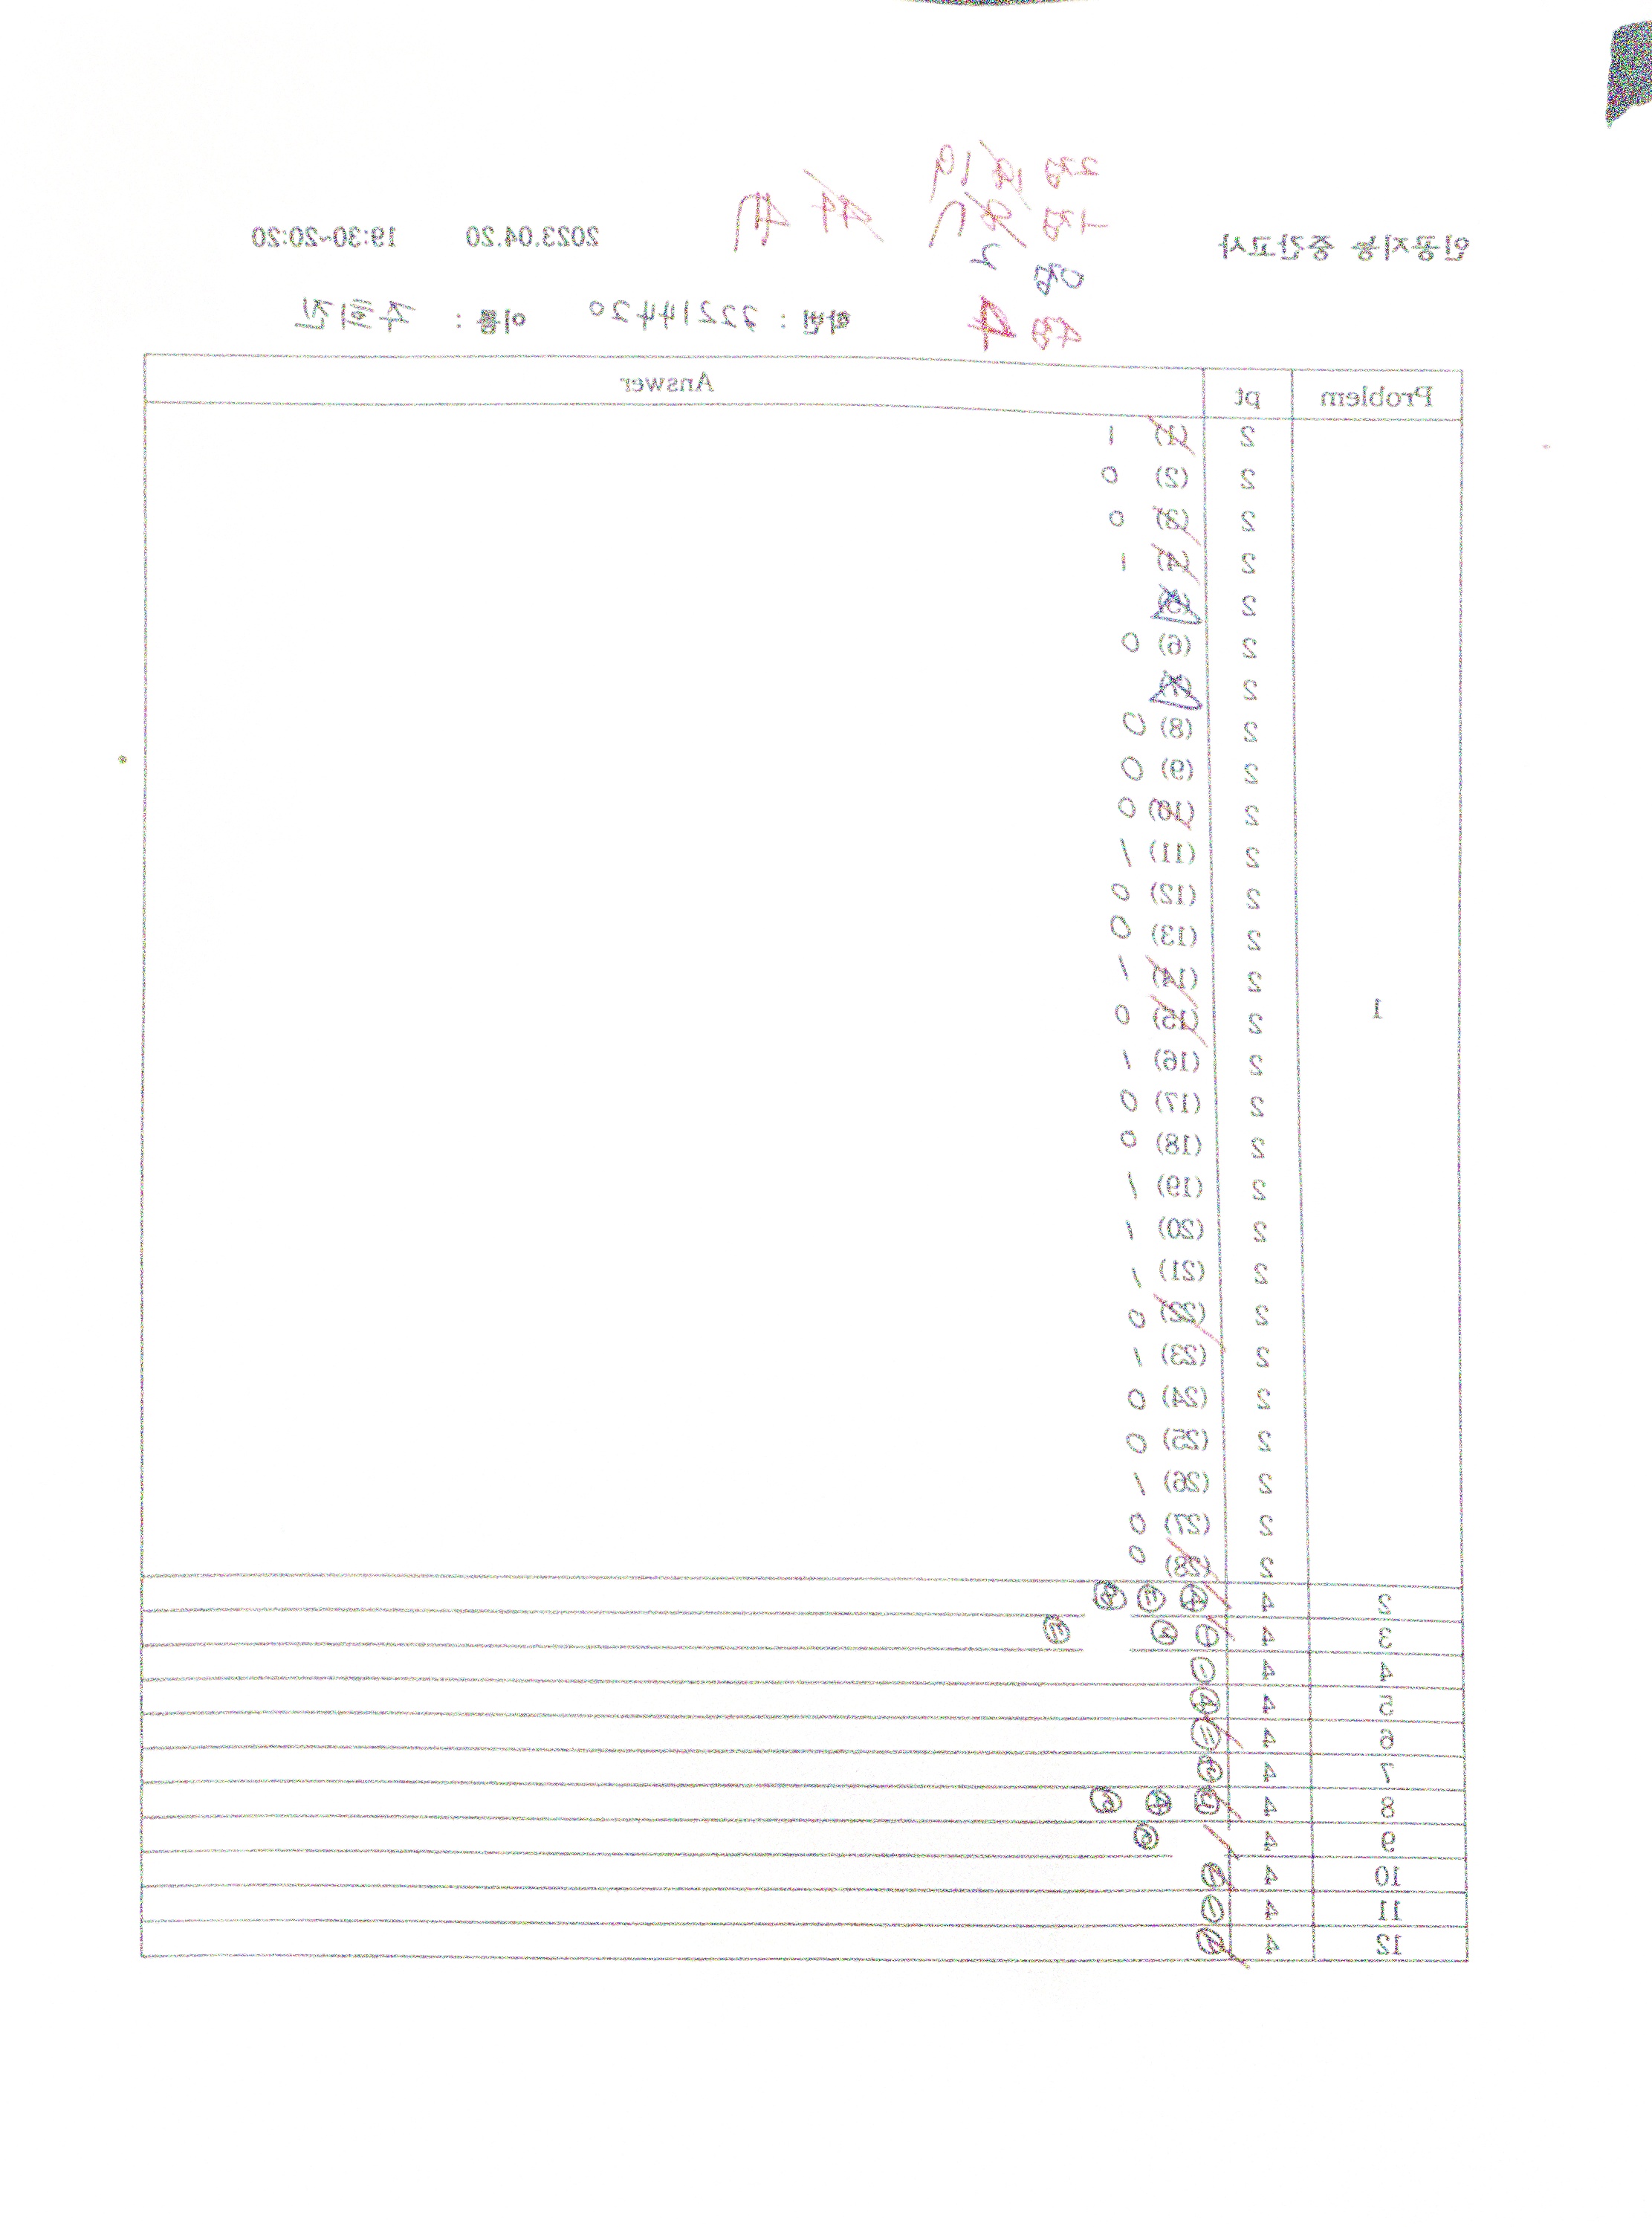 인공지능 중간고사 2023.04.20 19:30~20:20
2점 19
-1점
0점 2
4점 4
학번 : 22214420 이름 : 주희진
Problem pt Answer
1
2 (1) 1
2 (2) 0
2 (3) 0
2 (4) 1
2 (5)
2 (6) 0
2 (7)
2 (8) 0
2 (9) 0
2 (10) 0
2 (11) 1
2 (12) 0
2 (13) 0
2 (14) 1
2 (15) 0
2 (16) 1
2 (17) 0
2 (18) 0
2 (19) 1
2 (20) 1
2 (21) 1
2 (22) 0
2 (23) 1
2 (24) 0
2 (25) 0
2 (26) 1
2 (27) 0
2 (28) 0
2 4
3 4
4 4 ①
5 4 ④
6 4
7 4
8 4
9 4
10 4
11 4 ①
12 4